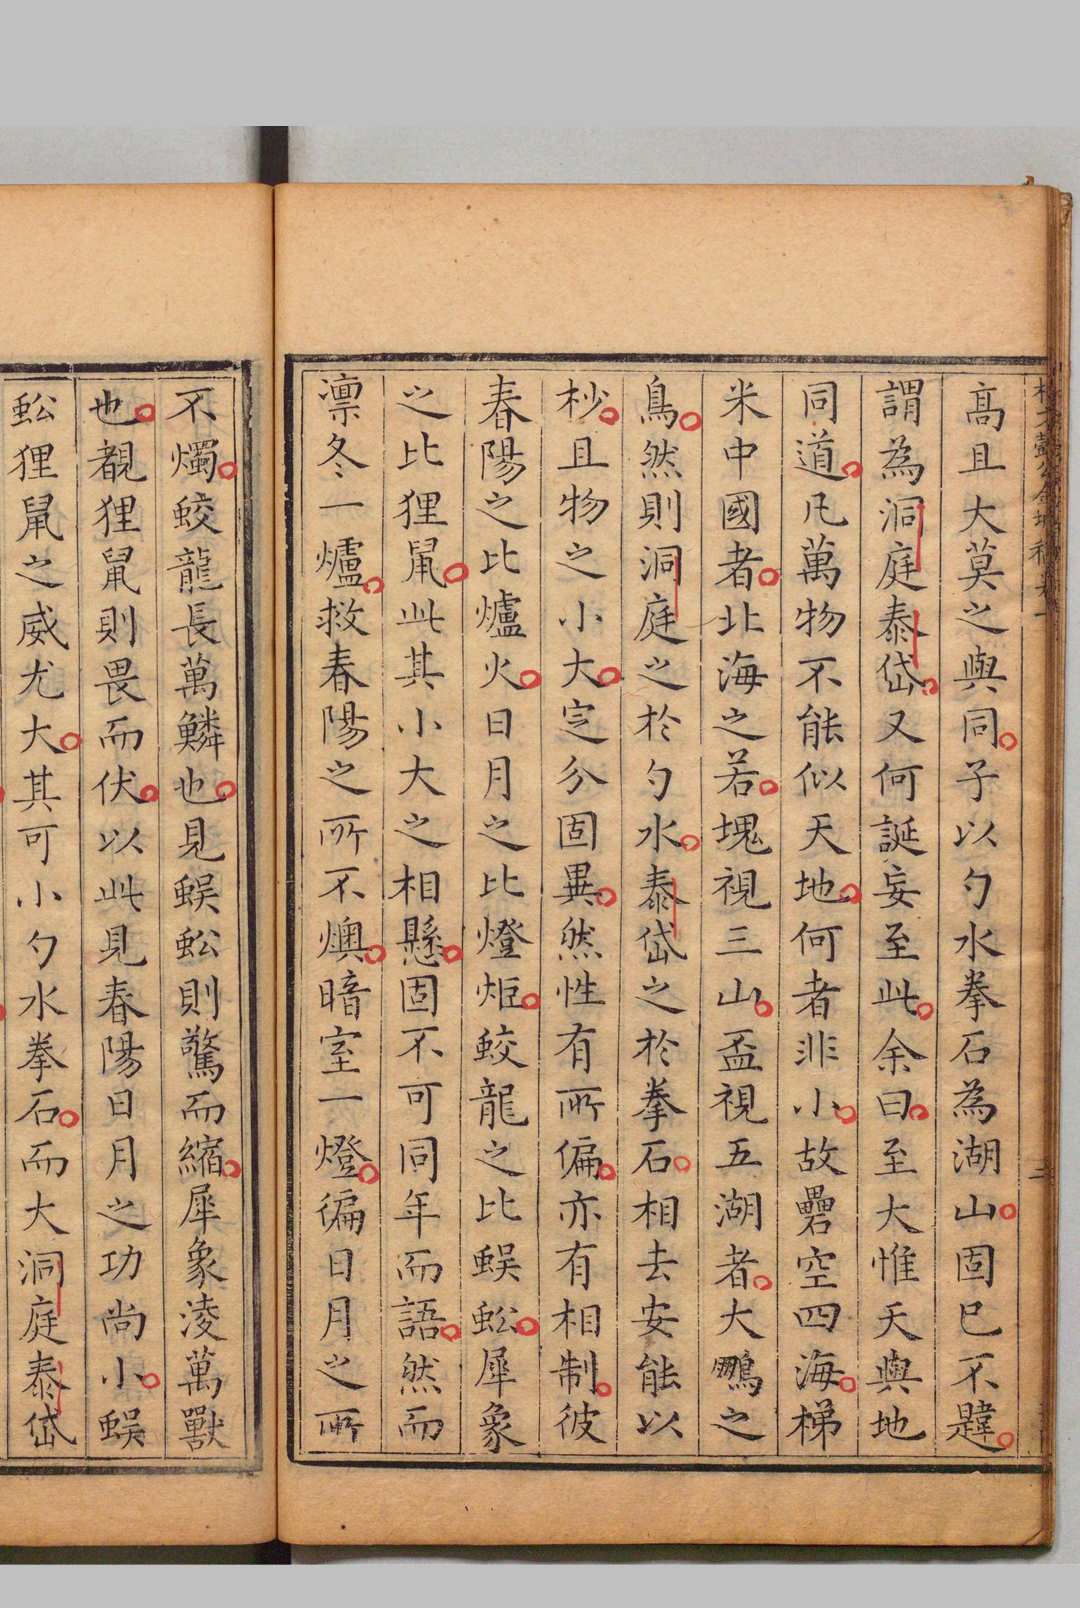 高且大莫之與同子以勺水拳石為湖山固已不韙
謂為洞庭泰岱又何誕妄至此余曰至大惟天與地
同道凡萬物不能似天地何者非小故礨空四海梯
米中國者北海之若塊視三山盃視五湖者大鵬之
鳥然則洞庭之於勺水泰岱之於拳石相去安能以
杪且物之小大定分固異然性有所偏亦有相制彼
春陽之比爐火日月之比燈炬蛟龍之比蜈蚣犀象
之比狸鼠此其小大之相懸固不可同年而語然而
凛冬一爐救春陽之所不燠暗室一燈徧日月之所
不燭蛟龍長萬鱗也見蜈蚣則驚而縮犀象凌萬獸
也覩狸鼠則畏而伏以此見春陽日月之功尚小蜈
蚣狸鼠之威尤大其可小勺水拳石而大洞庭泰岱